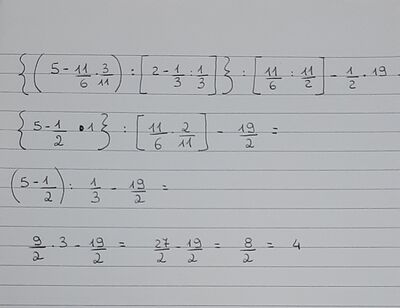 {(5 - 11/6 · 3/11) : [2 - 1/3 : 1/3]} : [11/6 : 11/2] - 1/2 · 19
{5 - 1/2 · 1} : [11/6 · 2/11] - 19/2 =
(5 - 1/2) : 1/3 - 19/2 =
9/2 · 3 - 19/2 = 27/2 - 19/2 = 8/2 = 4